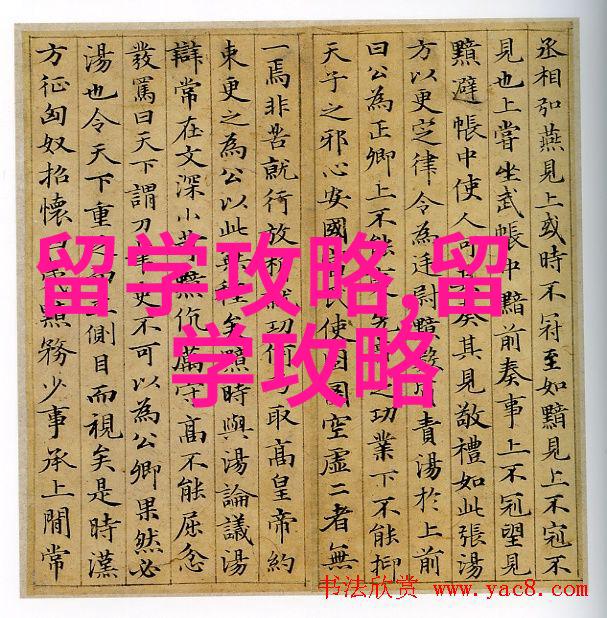 丞相弘燕見上或時不冠至如黯見上不冠不
見也上嘗坐武帳中黯前奏事上不冠望見
黯避帳中使人可其奏其見敬禮如此張湯
方以更定律令為廷尉黯數責湯於上前
曰公為正卿上不能先之功業下不能抑
天子之邪心安國民使囹圄空虛二者無
一焉非苦就行放析就功何取高皇帝約
束更之為公以此無種矣黯時與湯論議湯
辯常在文深小苛黯伉厲守高不能屈忿
發罵曰天下謂刀筆吏不可以為公卿果然必
湯也令天下重足側目而視矣是時漢
方征匈奴招懷四夷黯務少事承上間常
留学攻略,留
学攻略
书法欣赏 www.yac8.com